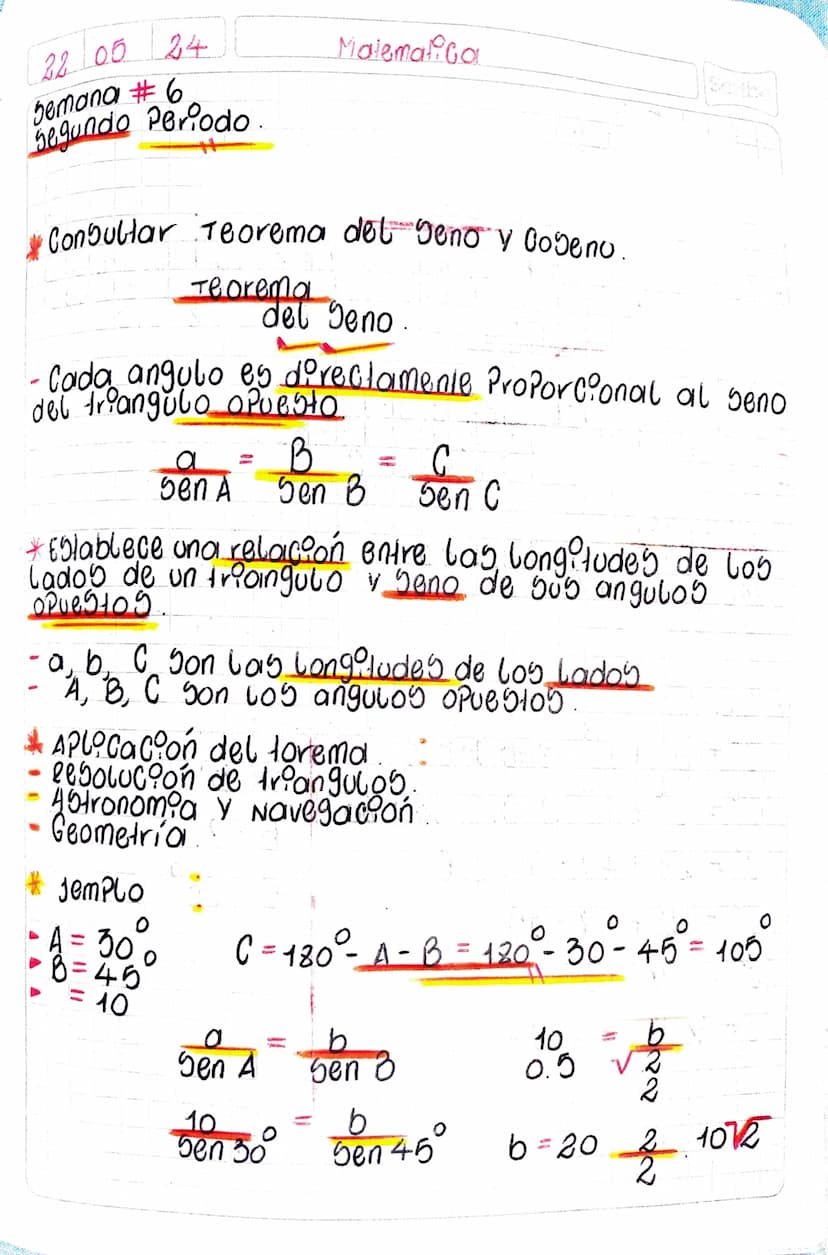 22 05 24 Matematica
Scribe
Semana # 6
Segundo Periodo.
* Consultar Teorema del Seno y Coseno.
Teorema
del Seno.
- Cada angulo es directamente Proporcional al seno
del triangulo opuesto
a/Sen A = B/Sen B = C/Sen C
* Establece una relación entre las longitudes de los
lados de un triangulo y seno de sus angulos
opuestos.
- a, b, C son las longitudes de los lados
- A, B, C son los angulos opuestos.
* Aplicación del torema :
- Resolución de triangulos.
- Astronomia y Navegación.
- Geometría.
* Jemplo :
A = 30°
B = 45°
= 10
C = 180° - A - B = 180° - 30° - 45° = 105°
a/Sen A = b/Sen B
10 0.5 = b/√2 2
10/Sen 30° = b/Sen 45°
b = 20 2/2 . 10√2